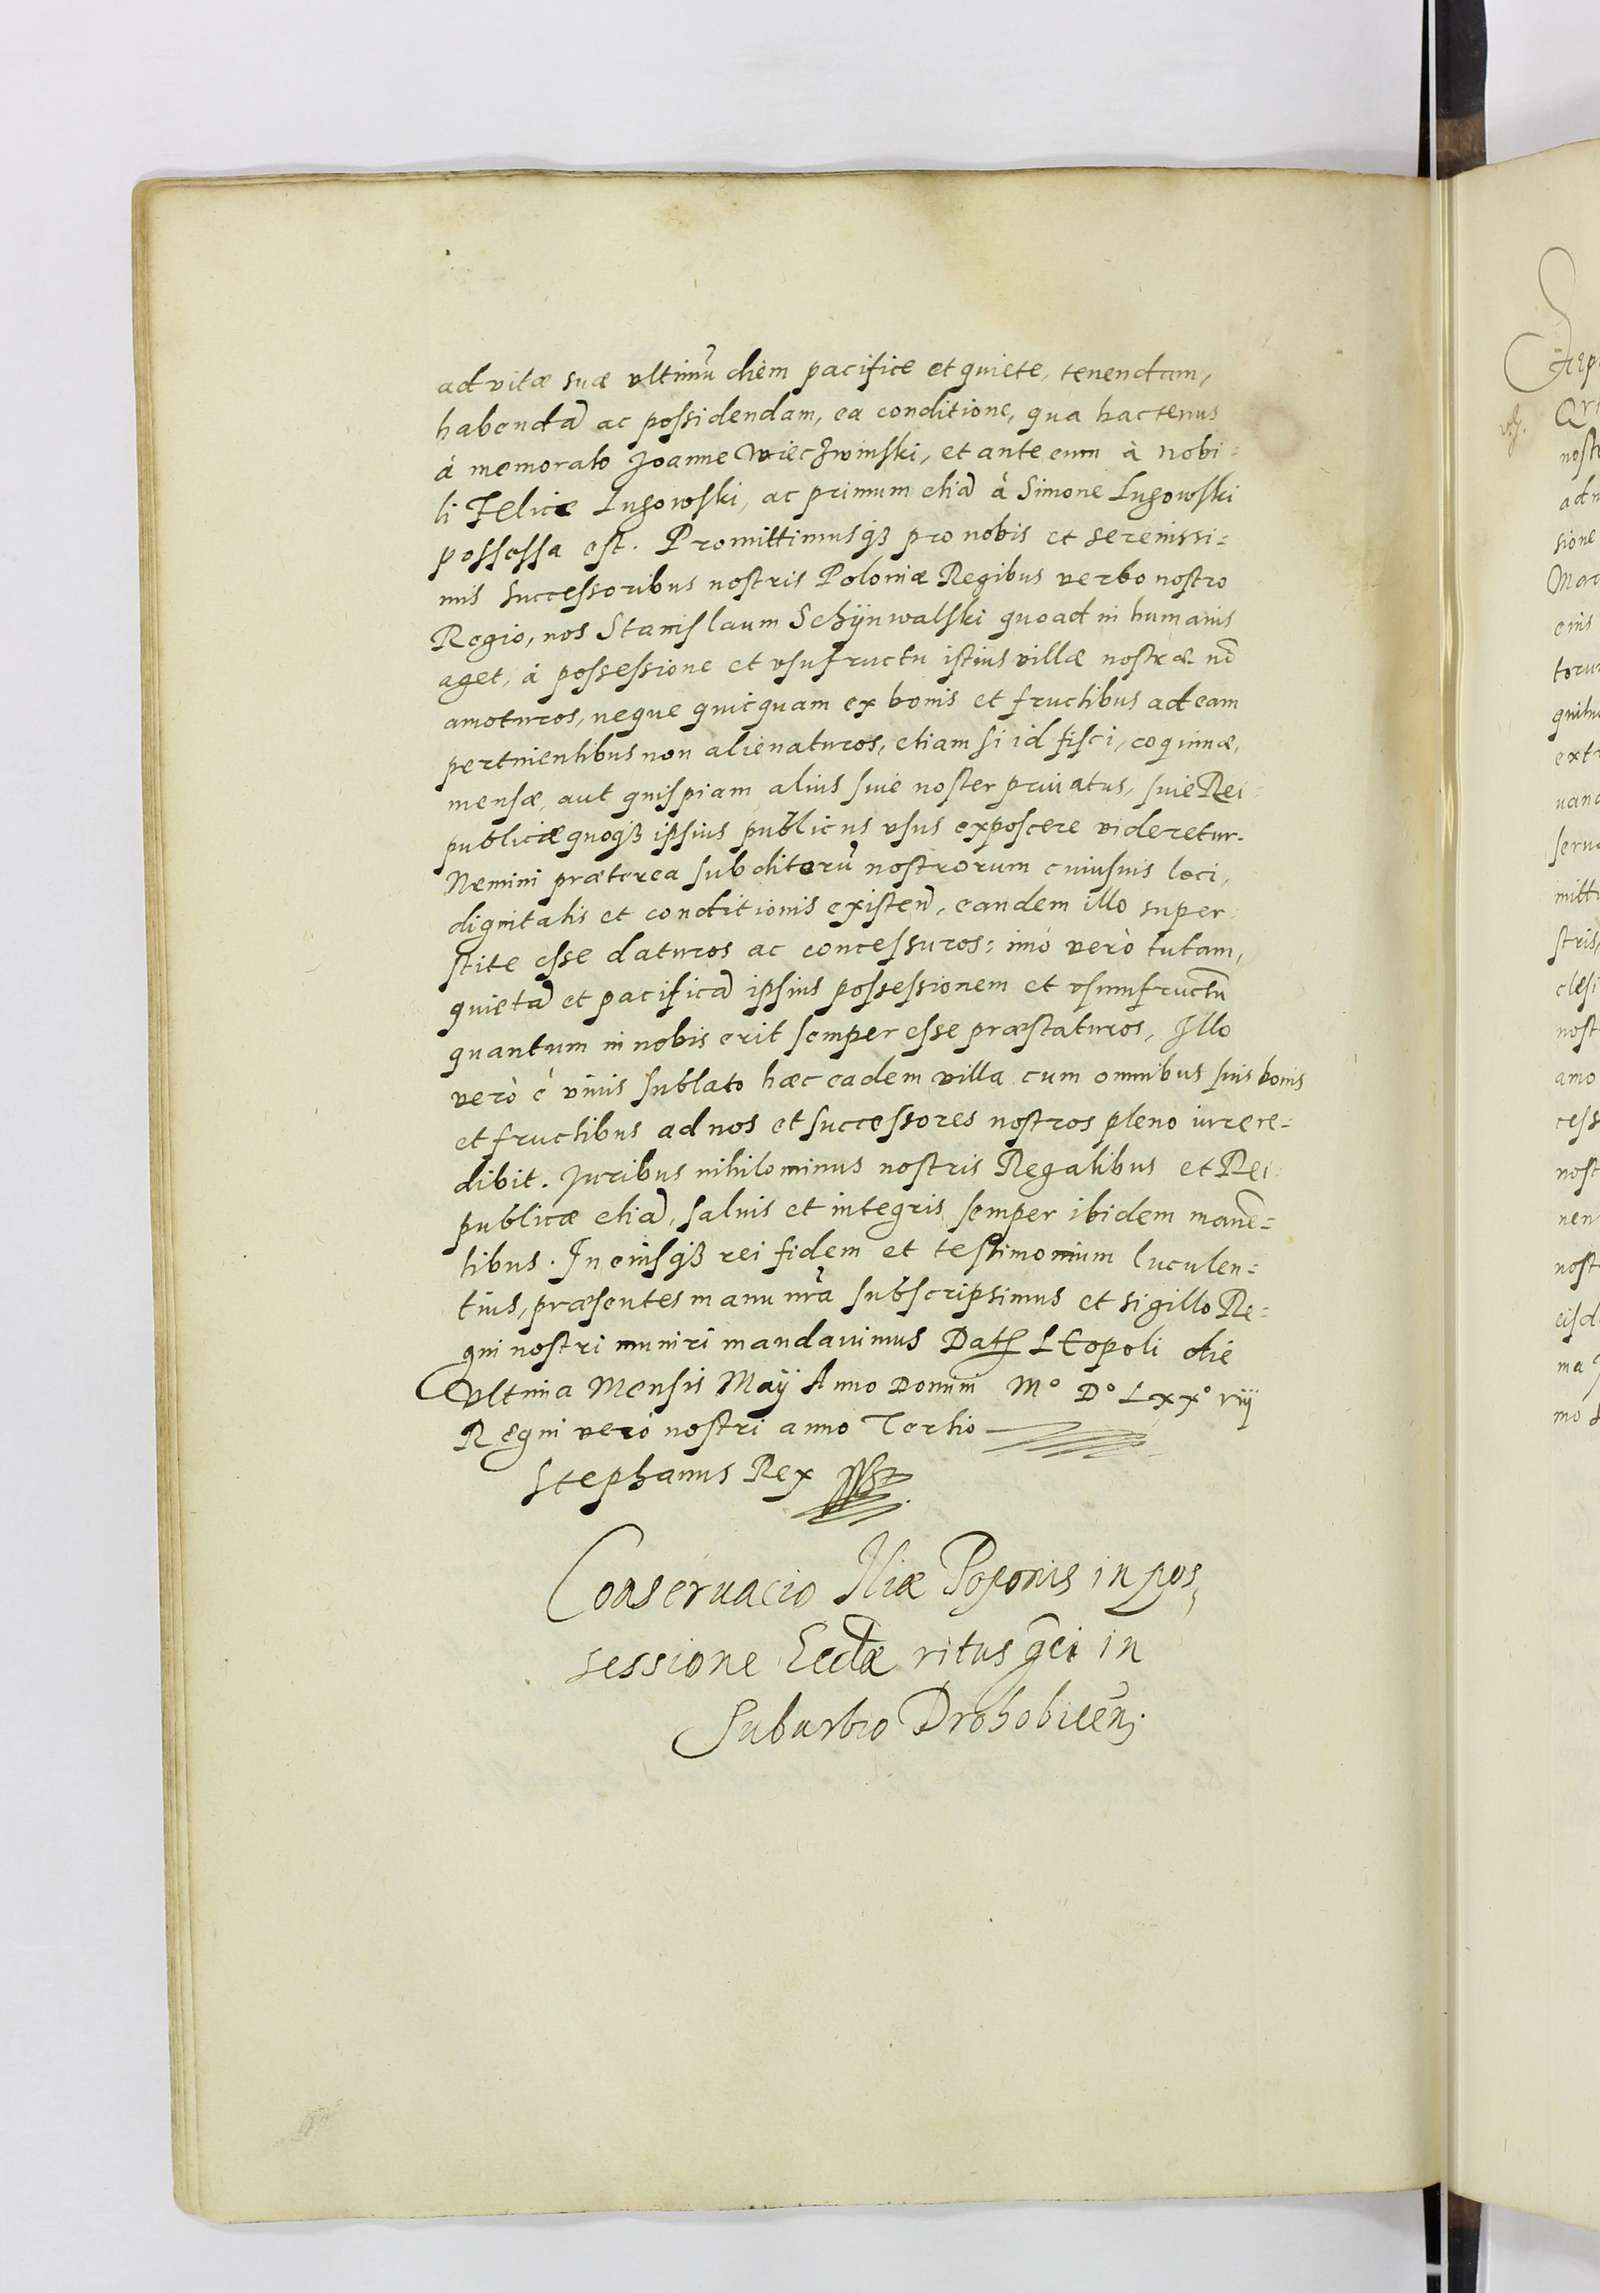 ad vitæ suæ vltimũ diem pacifice et quiete, tenendam,
habendã ac possidendam, ea conditione, qua hactenus
à memorato Joanne Wieczwinski, et ante eum à nobi=
li Felice Lugowski, ac primum etiã à Simone Lugowski
possessa est. Promittimusq3 pro nobis et serenissi=
mis successoribus nostris Poloniæ Regibus verbo nostro
Regio, nos Stanislaum Schÿnwalski quoad in humanis
aget, à possessione et vsufructu istius villæ nostræ nõ
amoturos, neque quicquam ex bonis et fructibus ad eam
pertinentibus non alienaturos, etiam si id fisci, coquinæ,
mensæ, aut quispiam alius siue noster priuatus, siue Rei=
publicæ quoq3 ipsius publicus vsus exposcere videretur.
Nemini præterea subditorũ nostrorum cuiusuis loci,
dignitatis et conditionis existeñ, eandem illo super=
stite esse daturos ac concessuros: imò verò tutam,
quietã et pacificã ipsius possessionem et vsumfructũ
quantum in nobis erit semper esse præstaturos, Illo
verò è viuis sublato hæc eadem villa cum omnibus suis bonis
et fructibus ad nos et successores nostros pleno iure re=
dibit. Juribus nihilominus nostris Regalibus et Rei=
publicæ etiã, saluis et integris semper ibidem manẽ=
tibus. In eiusq3 rei fidem et testimonium luculen=
tius, præsentes manu nr̃a subscripsimus et sigillo Re=
gni nostri muniri mandauimus Dat Leopoli die
vltima Mensis Maÿ Anno Domini Mº Dº Lxxº viij
Regni verò nostri anno Tertio
Stephanus Rex
Conseruacio Iliæ Poponis in pos,
sessione Eccłæ ritus gci in
Suburbio Drohobiceñ;